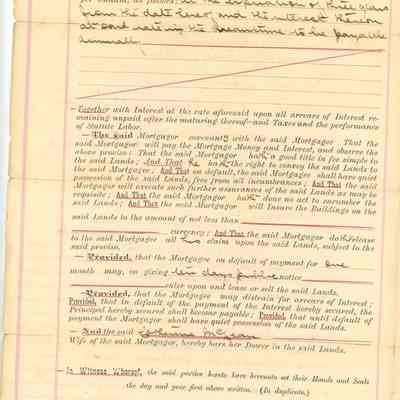 per annum, as follows: at the expiration of three years
from the date hereof and the interest thereon
at said rate in the meantime to be payable
annually
—Together with Interest at the rate aforesaid upon all arrears of Interest re-
maining unpaid after the maturing thereof—and Taxes and the performance
of Statute Labor.
—The said Mortgagor covenants with the said Mortgagee That the
said Mortgagor will pay the Mortgage Money and Interest, and observe the
above proviso: That the said Mortgagor hath a good title in fee simple to
the said Lands; And That he hath the right to convey the said Lands to
the said Mortgagee; And That on default, the said Mortgagee shall have quiet
possession of the said Lands, free from all incumbrances; And that the said
Mortgagor will execute such further assurances of the said Lands as may be
requisite; And that the said Mortgagor hath done no act to encumber the
said Lands; And That the said Mortgagor will Insure the Buildings on the
said Lands to the amount of not less than
currency: And That the said Mortgagor doth release
to the said Mortgagee all claim upon the said Lands, subject to the
said proviso.
—Provided, that the Mortgagee on default of payment for one
month may, on giving ten days notice
enter upon and lease or sell the said Lands.
—Provided, that the Mortgagee may distrain for arrears of Interest;
Provided, that in default of the payment of the Interest hereby secured, the
Principal hereby secured shall become payable; Provided, that until default of
payment the Mortgagor shall have quiet possession of the said Lands.
—And the said
Wife of the said Mortgagor, hereby bars her Dower in the said Lands.
In Witness Whereof, the said parties hereto have hereunto set their Hands and Seals
the day and year first above written. (In duplicate.)